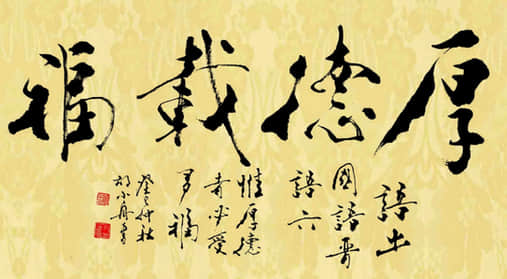 厚德載福
語出
國語晉
語六
惟厚德
者能受
多福
癸巳仲秋